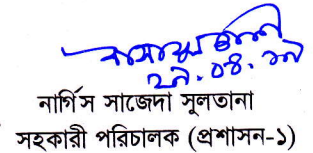 ২৯.০৪.১৯
নার্গিস সাজেদা সুলতানা
সহকারী পরিচালক (প্রশাসন-১)